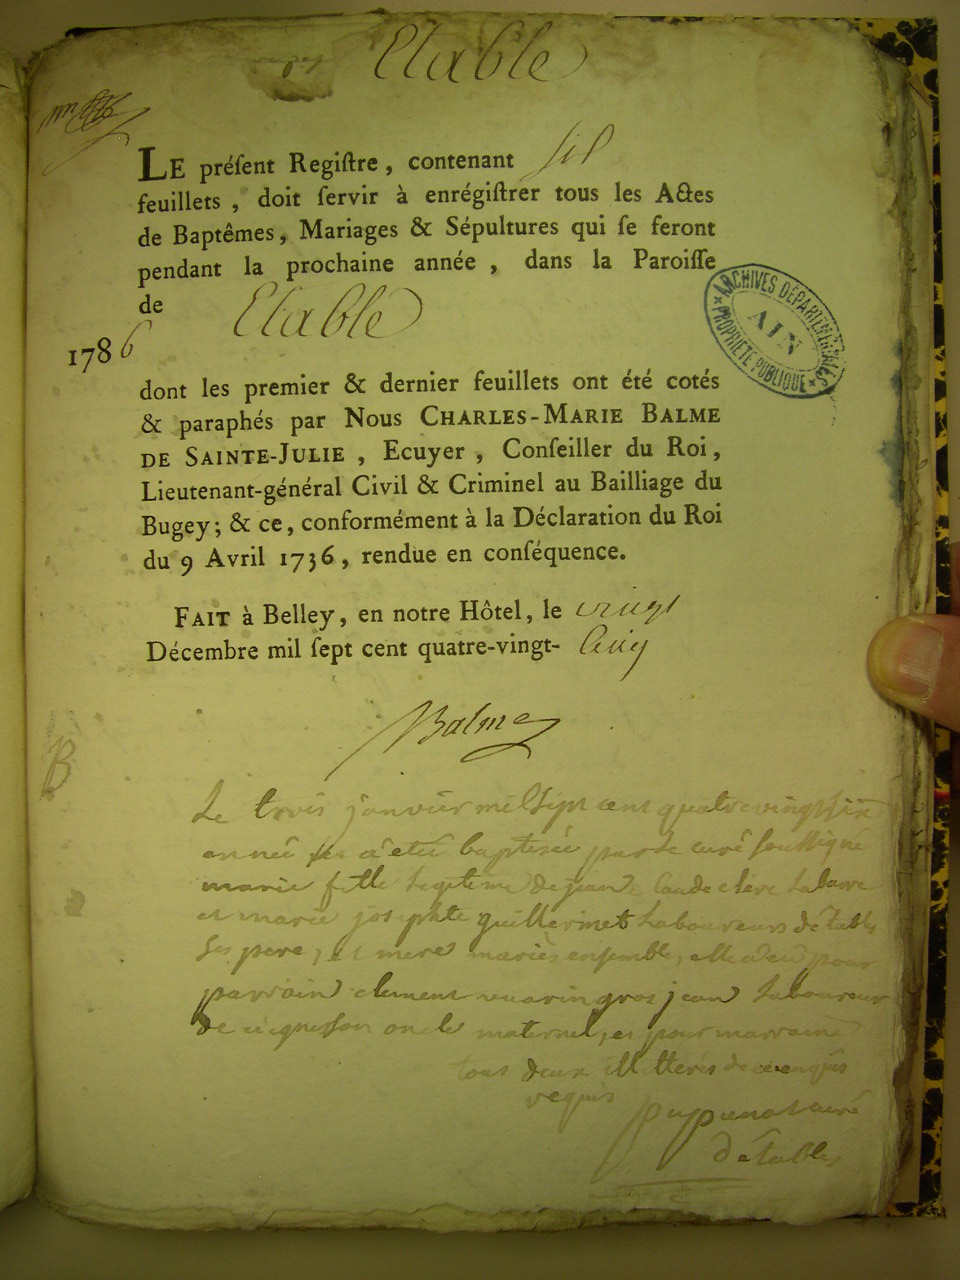 Etable
LE préſent Regiſtre, contenant six
feuillets, doit ſervir à enrégiſtrer tous les Actes
de Baptêmes, Mariages & Sépultures qui ſe feront
pendant la prochaine année, dans la Paroiſſe
de Etable
1786
ARCHIVES DÉPARTEMENTALES
AIN
PROPRIÉTÉ PUBLIQUE
dont les premier & dernier feuillets ont été cotés
& paraphés par Nous CHARLES-MARIE BALME
DE SAINTE-JULIE, Ecuyer, Conſeiller du Roi,
Lieutenant-général Civil & Criminel au Bailliage du
Bugey; & ce, conformément à la Déclaration du Roi
du 9 Avril 1736, rendue en conſéquence.
FAIT à Belley, en notre Hôtel, le vingt
Décembre mil ſept cent quatre-vingt- cinq
Balme
B
Le trois janvier mil sept cent quatre vingt six
année a eté baptisée par le curé soussigné
marie fille legitime de jean claude clere
et marie josephte guillermet laboureurs d'étables
ses pere, et mere mariés ensemble, elle a eu pour
parrain clement vuarin gros jean laboureur
de oncle maternel, et pour marraine
tous deux illitterés de ce enquis
requis
curé
d'étables